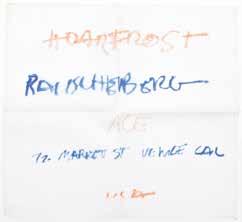 HOARFROST
RAUSCHENBERG
ACE
72 MARKET ST VENICE CAL